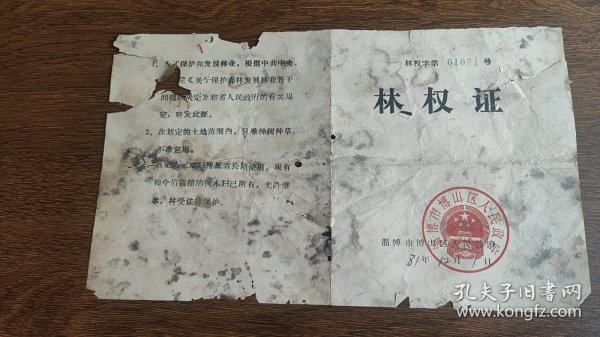 1、为了保护和发展林业，根据中共中央、
《关于保护森林发展林业若干
问题的决定》和省人民政府的有关规
定，特发此证。
2、在划定的土地范围内，只准种树种草，
不准它用。
长期使用，现有
和今后栽植的树木归己所有，允许继
承，并受法律保护。
林权字第 01061 号
林权证
淄博市博山区人民政府
淄博市博山区人民政府
81年12月1日
孔夫子旧书网
www.kongfz.com